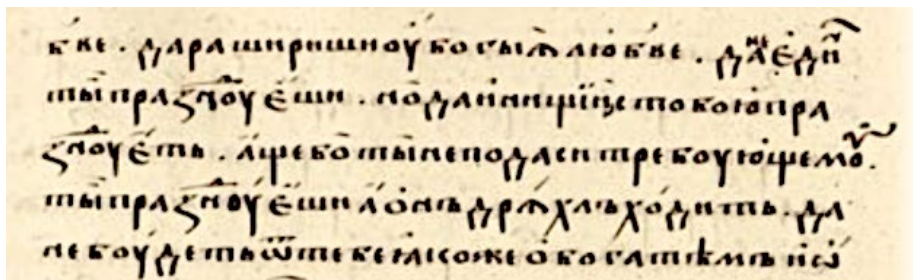 бве . дараширишиоубогыѧ любве . да не єдиⷩ
ты празⷣноуєши . но даи нищїи с тобою пра
зⷣноуєть . аще бо ты не подаси требоующемоу .
ты празⷣноуєши а онъ дрѧхлъ ходить . да
не боудеть ѿ тебе ꙗкоже о богатѣмъ и ѡ